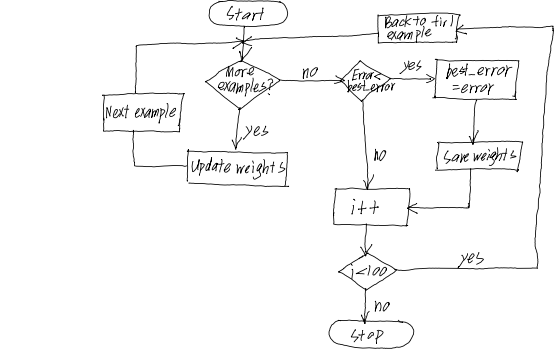 Start
Back to tirl
example
More
examples?
no
Error<
best_error
yes
best_error
=error
Next example
yes
Update weights
no
Save weights
i++
i<100
yes
no
Stop